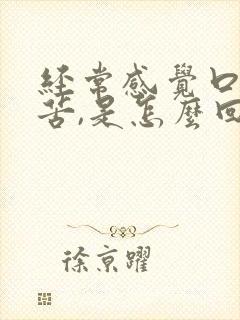 經常感覺口
苦,是怎麼回
徐京躍